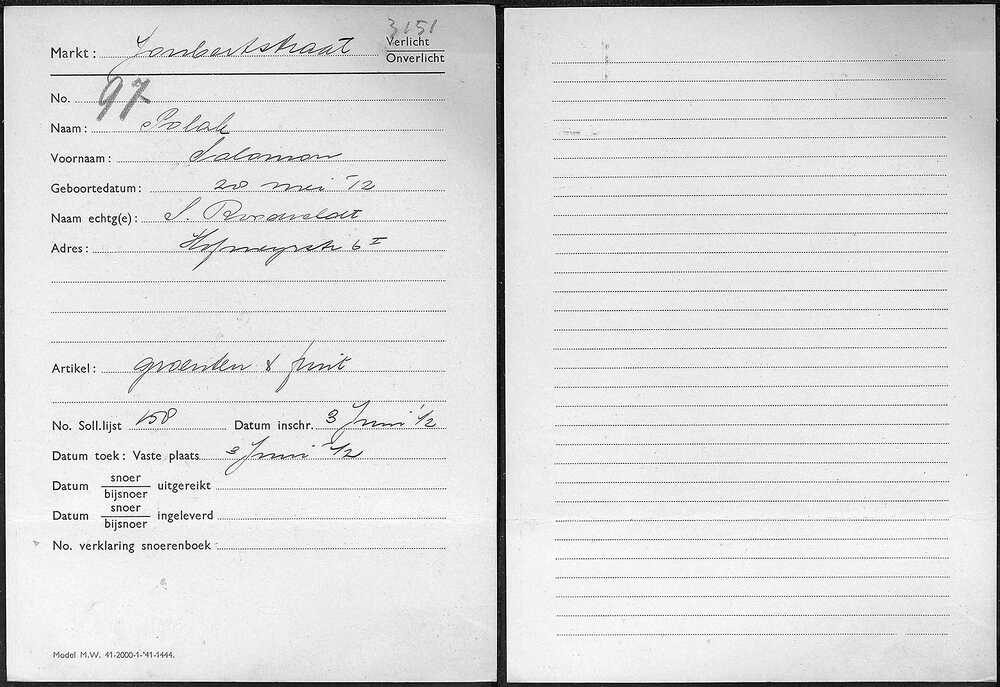 3151
Markt: Joubertstraat Verlicht
Onverlicht
No. 97
Naam: Polak
Voornaam: Salomon
Geboortedatum: 20 mei '12
Naam echtg(e): S. Roodveldt
Adres: Hofmeyrstr 6 I
Artikel: groenten & fruit
No. Soll.lijst 158 Datum inschr. 3 Juni '12
Datum toek: Vaste plaats 3 Juni '12
Datum snoer uitgereikt
bijsnoer
Datum snoer ingeleverd
bijsnoer
No. verklaring snoerenboek
Model M.W. 41-2000-1-'41-1444.